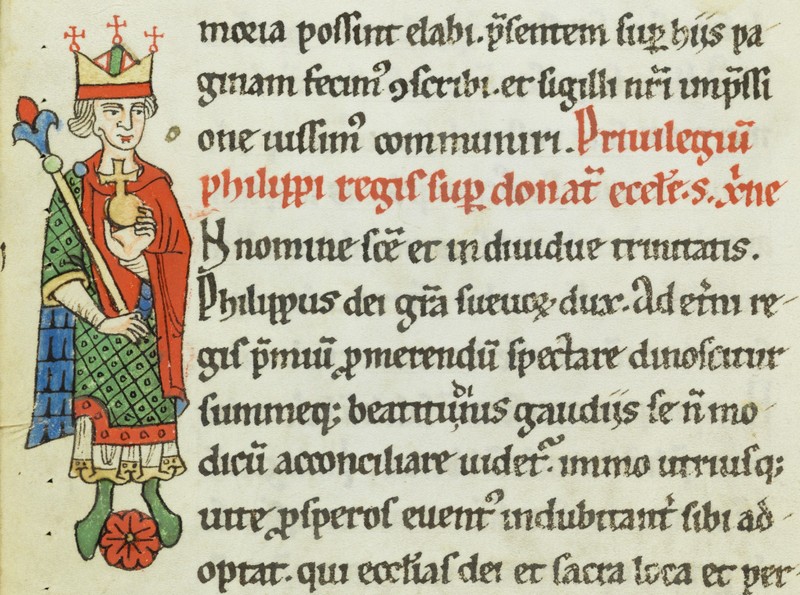 moria possint elabi. p̄sentem suꝑ hiis pa
ginam fecim᾿ ꝯscribi. et sigilli nr̄i imp̄ssi
one iussim᾿ communiri. Priuilegiū
philippi regis suꝑ donat᷑ eccl̄e. s. xp̄ne
IN nomine sc̄e et indiuidue trinitatis.
Philippus dei gr̄a sueuoꝝ dux. Ad et᷑ni re
gis p̄miū ꝓmerendū spectare dinoscitur
summeq; beatitudinis gaudiis se n̄ mo
dicū acconciliare uidet᷑. immo utriusq;
uite ꝓsperos euent᾿ indubitant᷑ sibi ad
optat. qui eccl̄ias dei et sacra loca et per